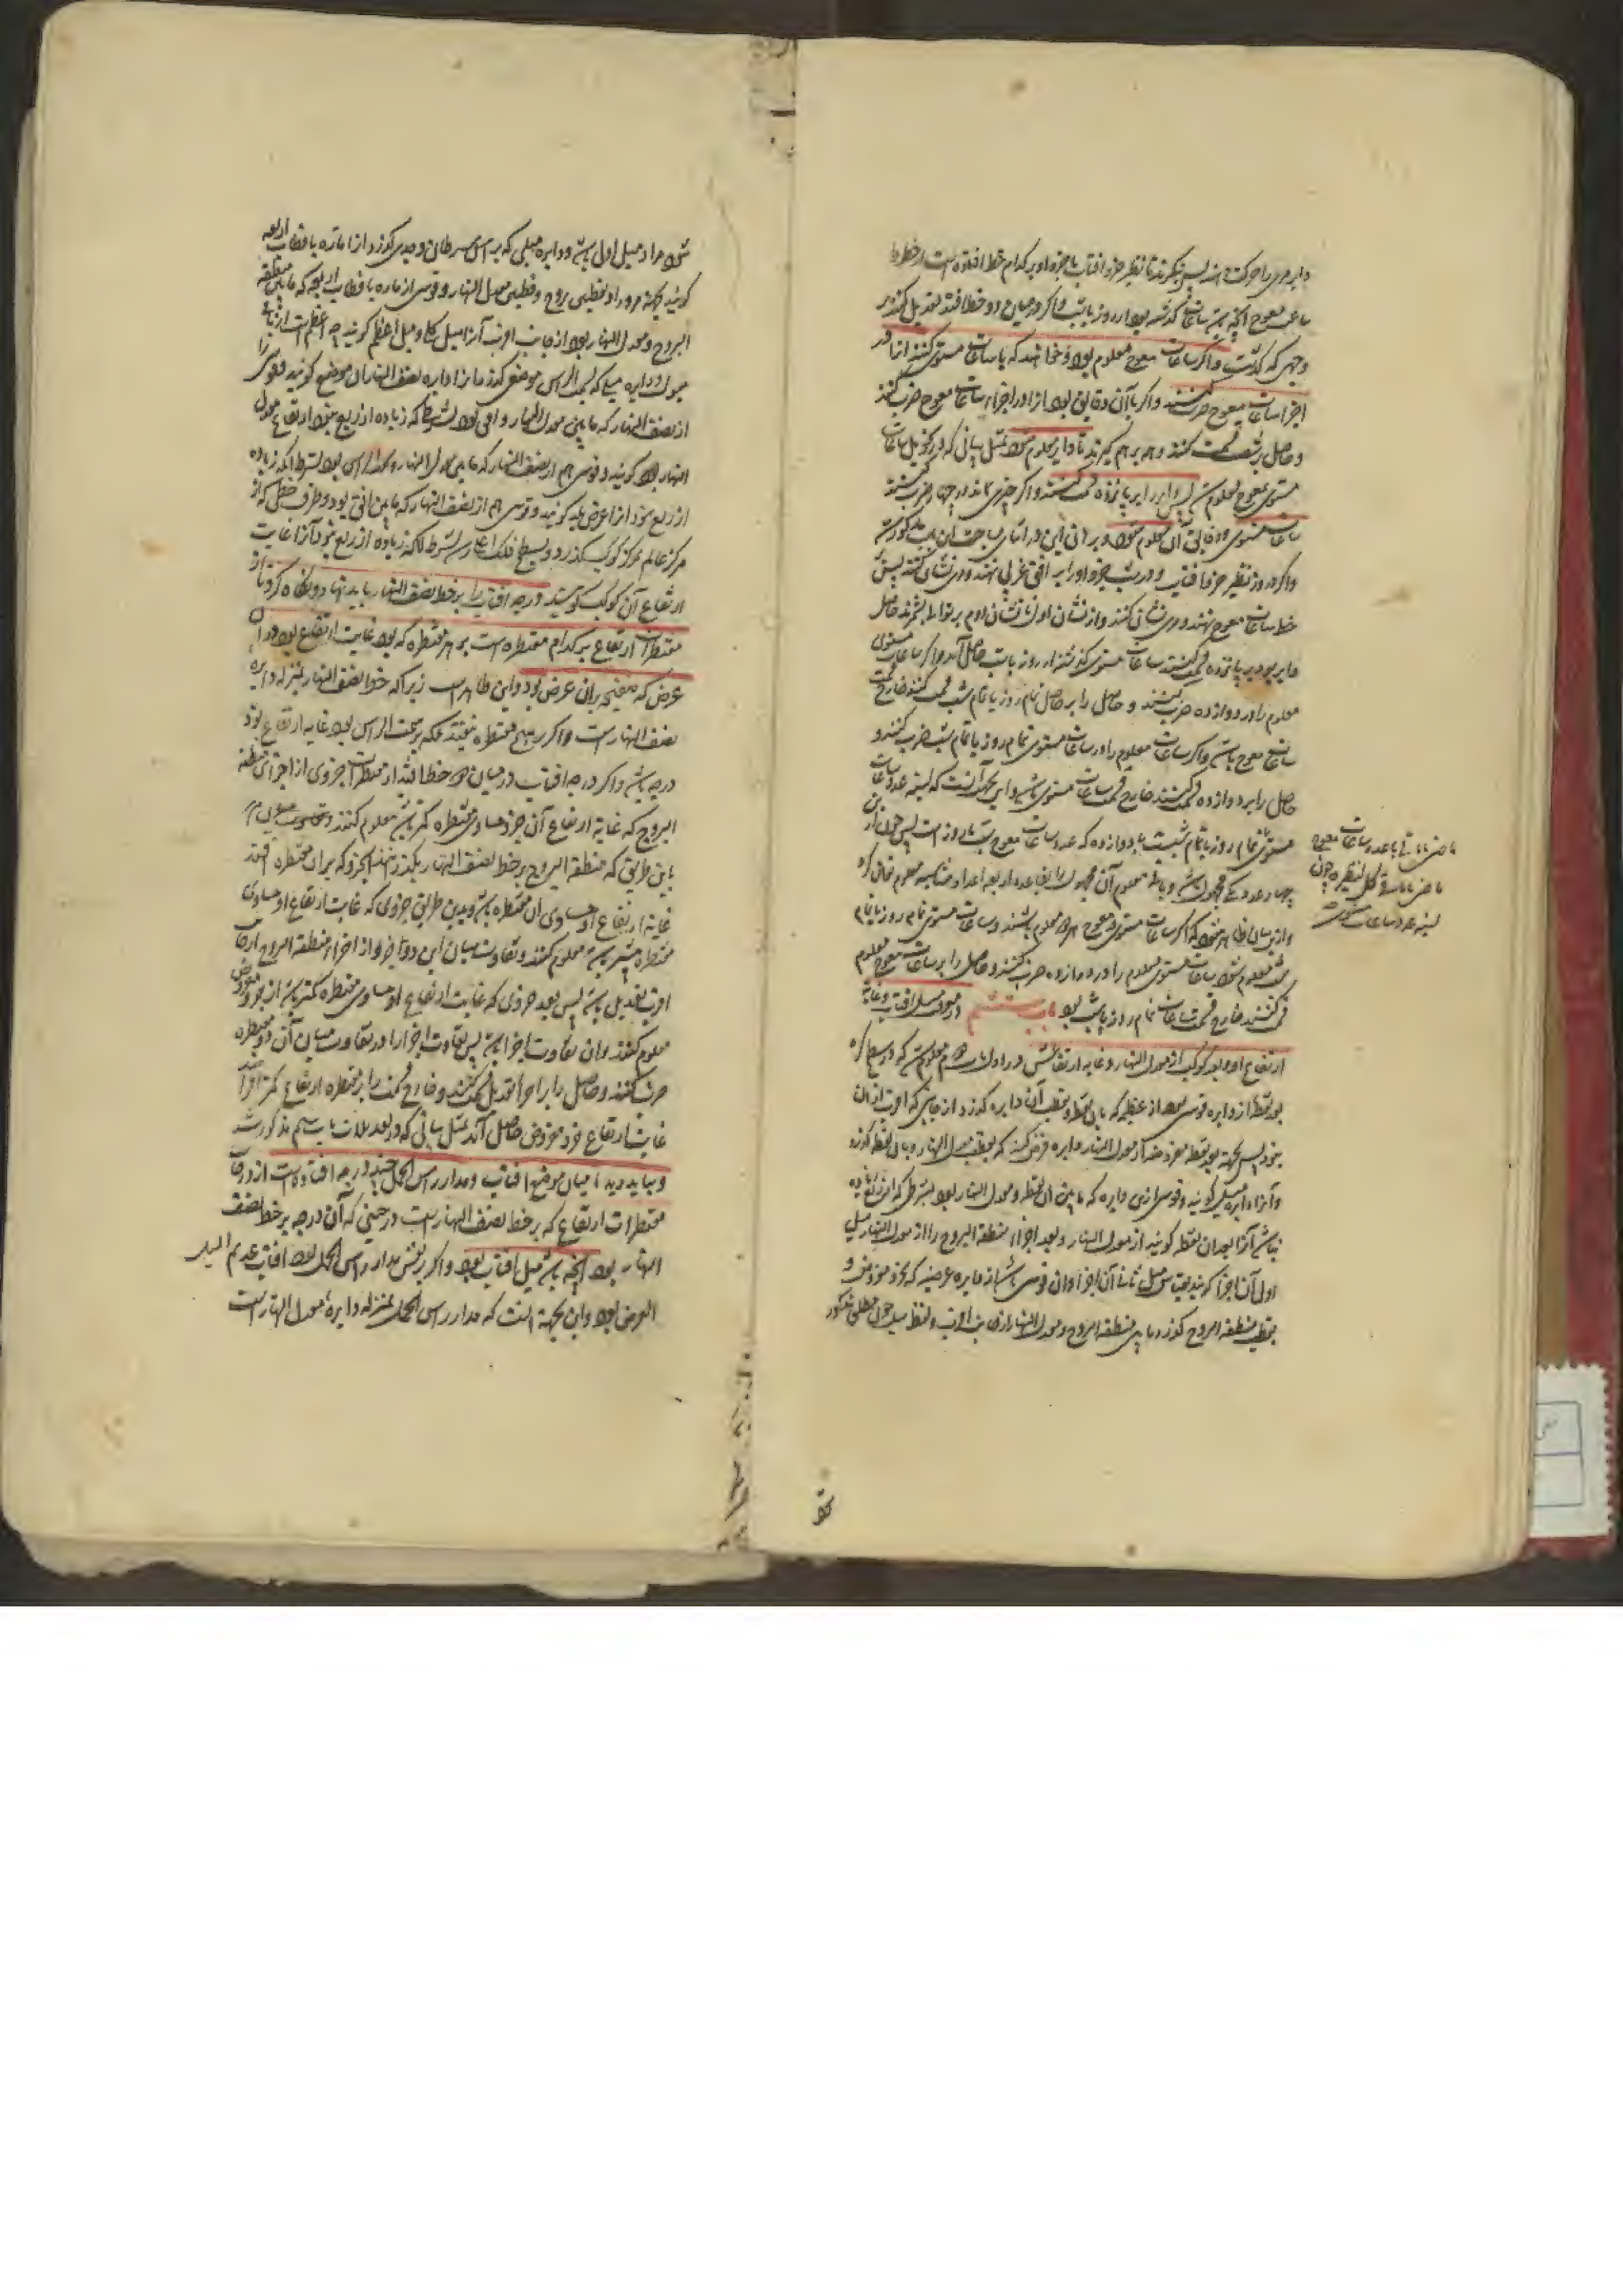 دایر مری را حرکت دهند پس بنگرند تا نظیر جزو افتاب یا جزو او بر کدام خط افتاده است از خطوط
ساعت معوج آنچه باشد ساعات گذشته بود از روز یا شب و اگر در میان دو خط افتد تعدیل کنند بر
وجهی که گذشت و اگر ساعات معوج معلوم بود و خواهند که با ساعات مستوی کنند انرا در
اجزا ساعات معوج ضرب کنند و اگر با آن دقایق بود انرا در اجزاء ساعات معوج ضرب کنند
و حاصل بر شصت قسمت کنند و همه بر هم گیرند تا دایر معلوم شود بمثل بیانی که در تحویل ساعات
مستوی بمعوج معلوم شد پس دایر را بر پانزده قسمت کنند و اگر چیزی بماند در چهار ضرب کنند
ساعات مستوی و دقایق آن معلوم شود و برهانی این در اثنای مباحث این باب مذکور شد
و اگر در روز نظیر جزو افتاب و در شب جزو او را بر افق غربی نهند و مری نشان کنند پس بر
خط ساعات معوج نهند و مری نشان کنند و از نشان اول تا نشان دوم بر توالی بشمرند حاصل
دایر بود بر پانزده قسمت کنند ساعات مستوی گذشته از روز یا شب حاصل آید و اگر ساعات مستوی
معلوم را در دوازده ضرب کنند و حاصل را بر حاصل تمام روز یا تمام شب قسمت کنند خارج قسمت
ساعات معوج باشد و اگر ساعات معلوم را در ساعات مستوی تمام روز یا تمام شب ضرب کنند و
حاصل را بر دوازده قسمت کنند خارج قسمت ساعات مستوی باشد و این بجهت آنست که نسبت عدد ساعات
مستوی تمام روز یا تمام شب با دوازده که عدد ساعات معوج شب یا روز است پس چون از این
چهار عدد یکی مجهول باشد و باقی معلوم آن مجهول را بقاعده اربعه اعداد متناسبه معلوم توان کرد
و ازین بیان ظاهر میشود که اگر ساعات مستوی و معوج هر دو معلوم باشند و ساعات مستوی تمام روز یا تمام
شب معلوم نبود ساعات مستوی معلوم را در دوازده ضرب کنند و حاصل را بر ساعات معوج معلوم
قسمت کنند خارج قسمت ساعات تمام روز یا شب بود باب ششم در معرفت میل افتاب و غایة
ارتفاع او و بعد کوکب از معدل النهار و غایه ارتفاعش در اول باب دوم معلوم شد که در سطح کره
بعد نقطه از دایره قوسی بود از عظیمه که بان نقطه و بقطب آن دایره گذرد از جانبی که اقرب از ان
نبود پس بجهة بعد نقطه مفروضه از معدل النهار دایره فرض کنند که بقطب معدل النهار و بان نقطه گذرد
و آنرا دایره میل گویند و قوسی ازین دایره که مابین ان نقطه و معدل النهار بود بشرطی که از ربع زیاده
نباشد آنرا بعد ان نقطه گویند از معدل النهار و بعد اجزاء منطقة البروج را از معدل النهار میل
اول آن اجزا گویند بقیاس میل ثانی آن اجزا و ان قوسی باشد از دایره عرضیه که بجزو مفروض و
بقطب منطقة البروج گذرد مابین منطقة البروج و معدل النهار از جانب اقرب و لفظ میل چون مطلق مذکور
ماضی تا باقی با عدد ساعات معوجه
شود مراد میل اول باشد و دایره میلی که براس سرطان و جدی گذرد انرا دایره ماره باقطاب اربعه
گویند بجهة مرور او بقطبی بروج و قطبی معدل النهار و قوسی از ماره باقطاب اربعه که مابین منطقة
البروج و معدل النهار بود از جانب اقرب آنرا میل کلی و میل اعظم گویند چه اعظمست از باقی
میول و دایره میل که بسمت الراس موضعی گذرد انرا دایره نصف النهار ان موضع گویند و قوسی را
از نصف النهار که مابین معدل النهار و افق بود بشرطی که زیاده از ربع نبود ارتفاع معدل
النهار گویند و قوسی هم از نصف النهار که مابین معدل النهار و سمت الراس بود بشرط انکه زیاده
از ربع نبود انرا عرض بلد گویند و قوسی هم از نصف النهار که مابین افق بود و طرف خطی که از
مرکز عالم بمرکز کوکب گذرد و بسطح فلک اعلی رسد بشرط انکه زیاده از ربع نبود آنرا غایت
ارتفاع آن کوکب گویند درجه افتاب را بر خط نصف النهار باید نهاد و نگاه کرد تا از
مقنطرات ارتفاع بر کدام مقنطره است بر هر مقنطره که بود غایت ارتفاع بود در ان
عرض که صفیحه بران عرض بود و این ظاهرست زیرا که خط نصف النهار بمنزله دایره
نصف النهارست و اگر بر هیچ مقنطره نیفتد بلکه بر سمت الراس بود غایه ارتفاع نود
درجه باشد و اگر درجه افتاب در میان دو خط افتد از مقنطرات جزوی از اجزای منطقه
البروج که غایة ارتفاع آن جزو مساوی مقنطره کمتر باشد معلوم کنند
باین طریق که منطقة البروج بر خط نصف النهار بگذرانند تا جزو که بران مقنطره افتد
غایة ارتفاع او مساوی ان مقنطره باشد و بدین طریق جزوی که غایت ارتفاع او مساوی
مقنطره بیشتر باشد معلوم کنند و تفاوت میان این دو جزو از اجزاء منطقة البروج
اجزاء تعدیل باشد پس بعد جزوی که غایت ارتفاع او مساوی مقنطره کمتر باشد از جزو مفروض
معلوم کنند و ان تفاوت اجزا باشد پس تفاوت اجزا را در تفاوت میان آن دو مقنطره
ضرب کنند و حاصل را بر اجزا تعدیل قسمت کنند و خارج قسمت را بر مقنطره ارتفاع کمتر افزایند
غایت ارتفاع جزو مفروض حاصل آید بمثل بیانی که در تعدیلات باب سیم مذکور شد
و بباید دید تا میان موضع افتاب و مدار راس الحمل چند درجه افتاده است از درجات
مقنطرات ارتفاع که بر خط نصف النهارست در حینی که آن درجه بر خط نصف
النهار بود آنچه باشد میل افتاب بود و اگر بنفس مدار راس الحمل بود افتاب عدیم المیل
العرض بود و این بجهة انست که مدار راس الحمل بمنزله دایره معدل النهارست